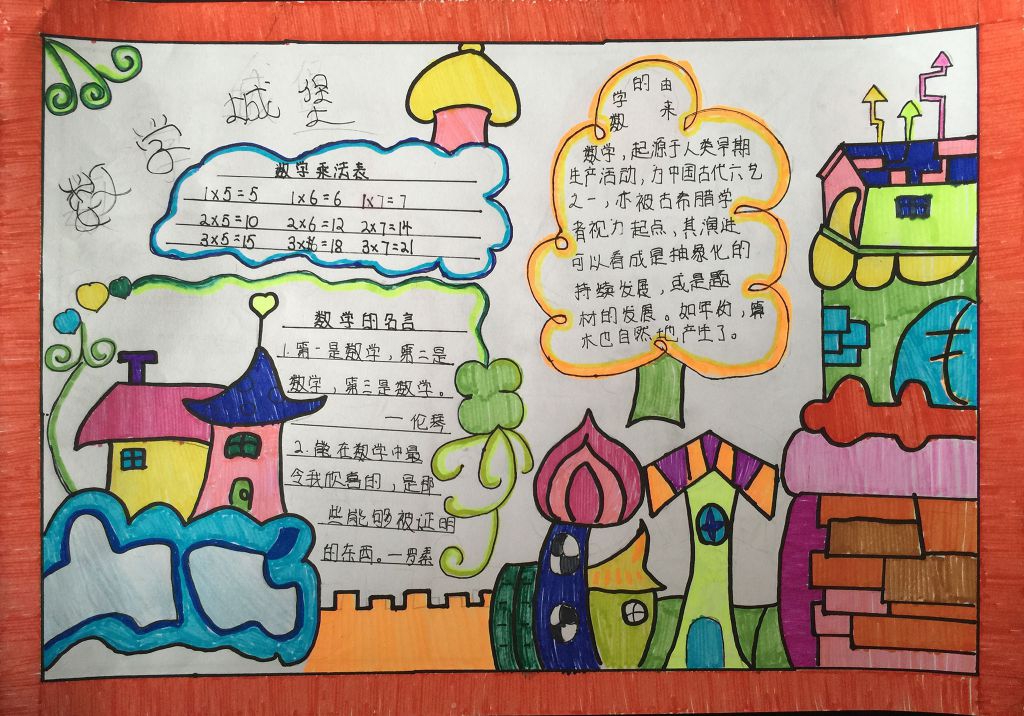 数学城堡
数学乘法表
1×5=5 1×6=6 1×7=7
2×5=10 2×6=12 2×7=14
3×5=15 3×6=18 3×7=21
数学的名言
1.第一是数学，第二是
数学，第三是数学。
—伦琴
2.能在数学中最
令我欣喜的，是那
些能够被证明
的东西。—罗素
数学的由来
数学，起源于人类早期
生产活动，为中国古代六艺
之一，亦被古希腊学
者视为起点，其演进
可以看成是抽象化的
持续发展，或是题
材的发展。如年份，算
术也自然地产生了。